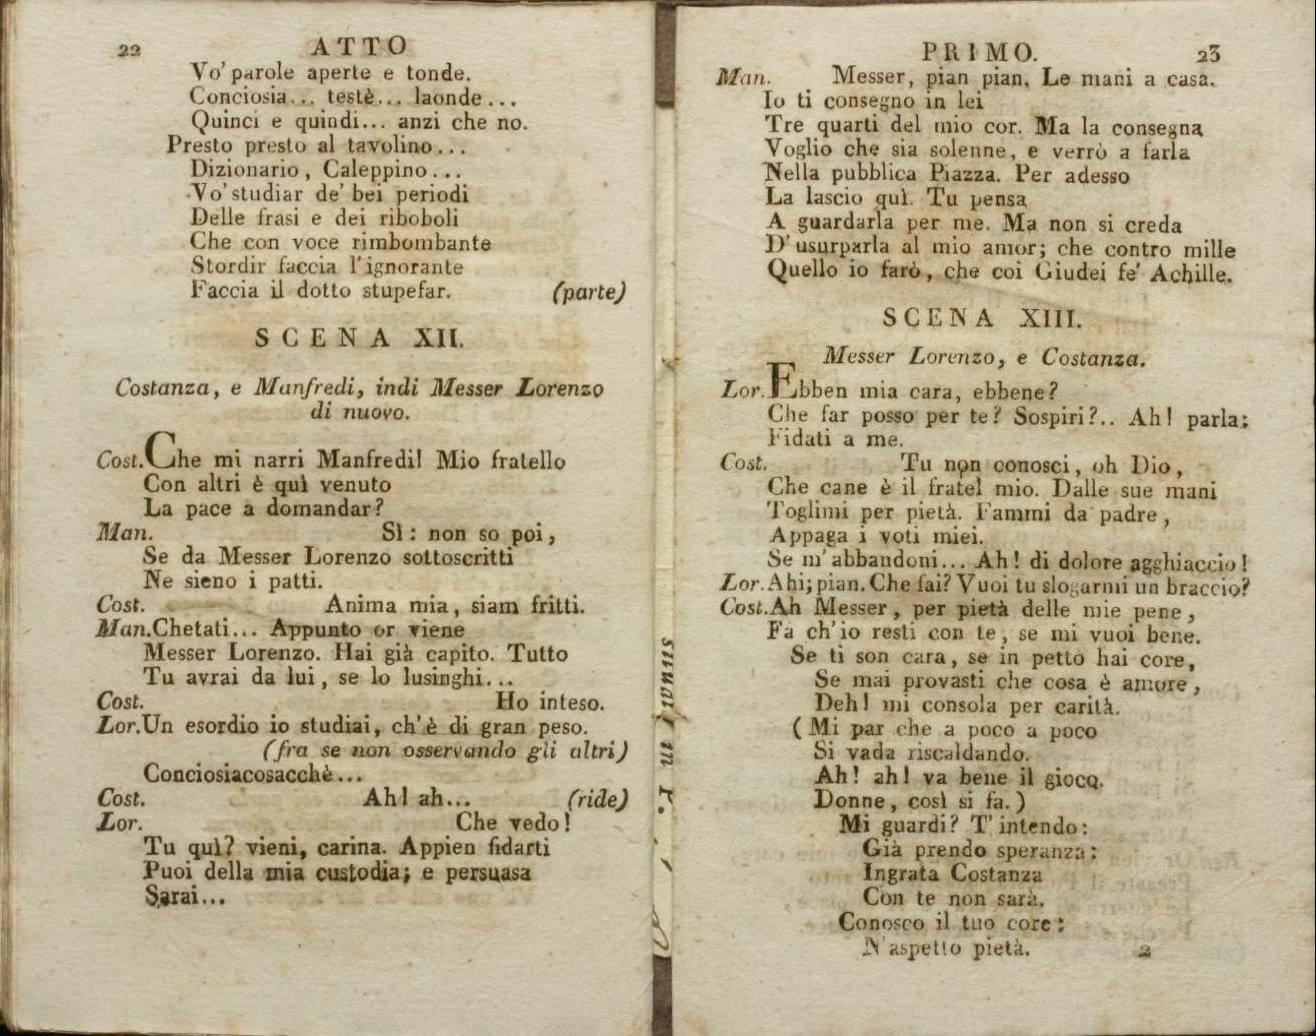 22 ATTO
Vo' parole aperte e tonde.
Conciosia... testè... laonde...
Quinci e quindi... anzi che no.
Presto presto al tavolino...
Dizionario, Caleppino...
Vo' studiar de' bei periodi
Delle frasi e dei riboboli
Che con voce rimbombante
Stordir faccia l'ignorante
Faccia il dotto stupefar. (parte)
SCENA XII.
Costanza, e Manfredi, indi Messer Lorenzo
di nuovo.
Cost. Che mi narri Manfredi! Mio fratello
Con altri è quì venuto
La pace a domandar?
Man. Sì: non so poi,
Se da Messer Lorenzo sottoscritti
Ne sieno i patti.
Cost. Anima mia, siam fritti.
Man. Chetati... Appunto or viene
Messer Lorenzo. Hai già capito. Tutto
Tu avrai da lui, se lo lusinghi...
Cost. Ho inteso.
Lor. Un esordio io studiai, ch'è di gran peso.
(fra se non osservando gli altri)
Conciosiacosacchè...
Cost. Ah! ah... (ride)
Lor. Che vedo!
Tu quì? vieni, carina. Appien fidarti
Puoi della mia custodia; e persuasa
Sarai...
PRIMO. 23
Man. Messer, pian pian. Le mani a casa.
Io ti consegno in lei
Tre quarti del mio cor. Ma la consegna
Voglio che sia solenne, e verrò a farla
Nella pubblica Piazza. Per adesso
La lascio quì. Tu pensa
A guardarla per me. Ma non si creda
D'usurparla al mio amor; che contro mille
Quello io farò, che coi Giudei fe' Achille.
SCENA XIII.
Messer Lorenzo, e Costanza.
Lor. Ebben mia cara, ebbene?
Che far posso per te? Sospiri?.. Ah! parla;
Fidati a me.
Cost. Tu non conosci, oh Dio,
Che cane è il fratel mio. Dalle sue mani
Toglimi per pietà. Fammi da padre,
Appaga i voti miei.
Se m'abbandoni... Ah! di dolore agghiaccio!
Lor. Ahi; pian. Che fai? Vuoi tu slogarmi un braccio?
Cost. Ah Messer, per pietà delle mie pene,
Fa ch'io resti con te, se mi vuoi bene.
Se ti son cara, se in petto hai core,
Se mai provasti che cosa è amore,
Deh! mi consola per carità.
(Mi par che a poco a poco
Si vada riscaldando.
Ah! ah! va bene il gioco.
Donne, così si fa.)
Mi guardi? T'intendo:
Già prendo speranza:
Ingrata Costanza
Con te non sarà.
Conosco il tuo core:
N'aspetto pietà.
2